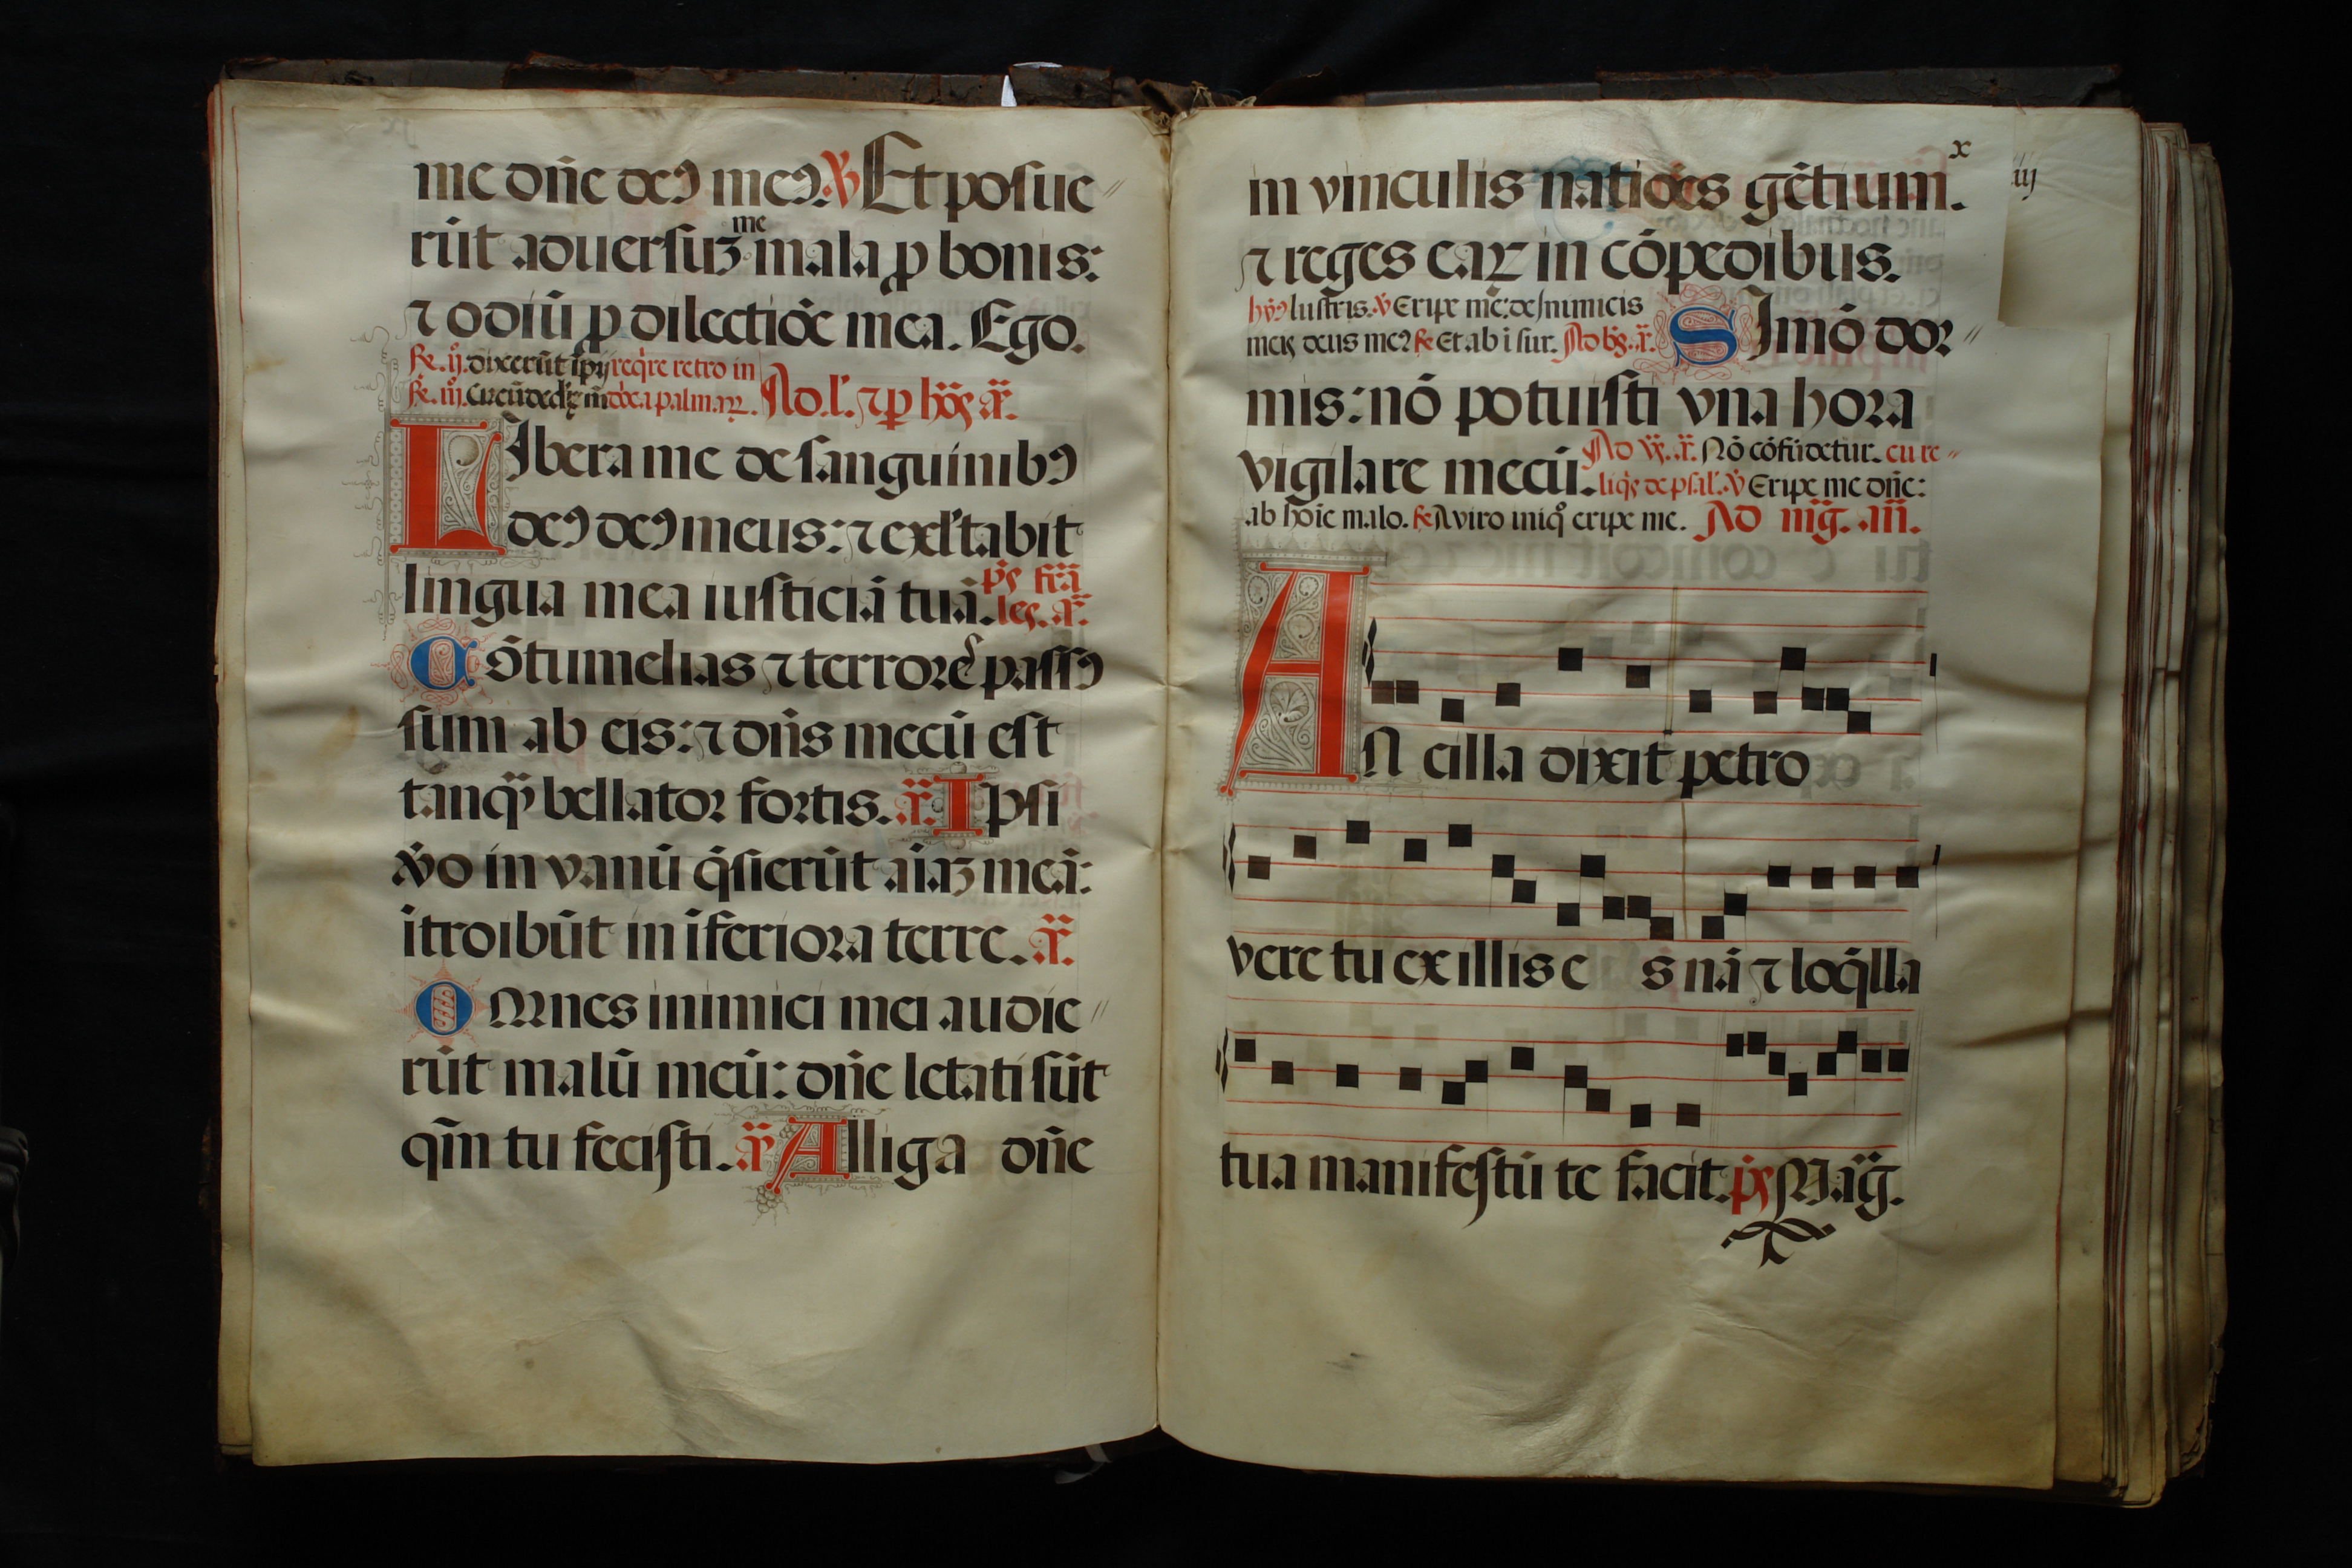 me dñe deꝰ meꝰ. ℣ Et posue〃
rūt aduersuꝫ me mala ꝓ bonis:
⁊ odiū ꝓ dilectiōe mea. Ego.
dixerūt ipij req̇re retro in
palmaꝝ. Ad .l'. ⁊ ꝑ
LIbera me de sanguinibꝰ
deꝰ deꝰ meus: ⁊ exl'tabit
lingua mea iusticiā tuā. p̄s
Cōtumelias ⁊ terrorē passꝰ
sum ab eis: ⁊ dñs mecū est
tanq̄ bellator fortis. ā. Ipsi
v̊o in vanū q̇sierūt aīaꝫ meā:
ītroibūt in īferiora terre. ā.
OMnes inimici mei audie〃
rūt malū meū: dñe letati sūt
qm̄ tu fecisti. ā Alliga dñe
x
iij
in vinculis natiōes gētium.
⁊ reges eaꝝ in cōpedibus.
lustris. ℣ Eripe me de inimicis
meis deus meꝰ Et ab i sur. SImō dor〃
mis: nō potuisti vna hora
vigilare mecū. Nō cōfūdetur. cu re〃
de psal'. ℣ Eripe me dñe:
ab hoīe malo. A viro iniq̊ eripe me. Ad mḡ. añ.
AN cilla dixit petro
vere tu ex illis e s nā ⁊ loq̄lla
tua manifestū te facit. p̄s Maḡ.